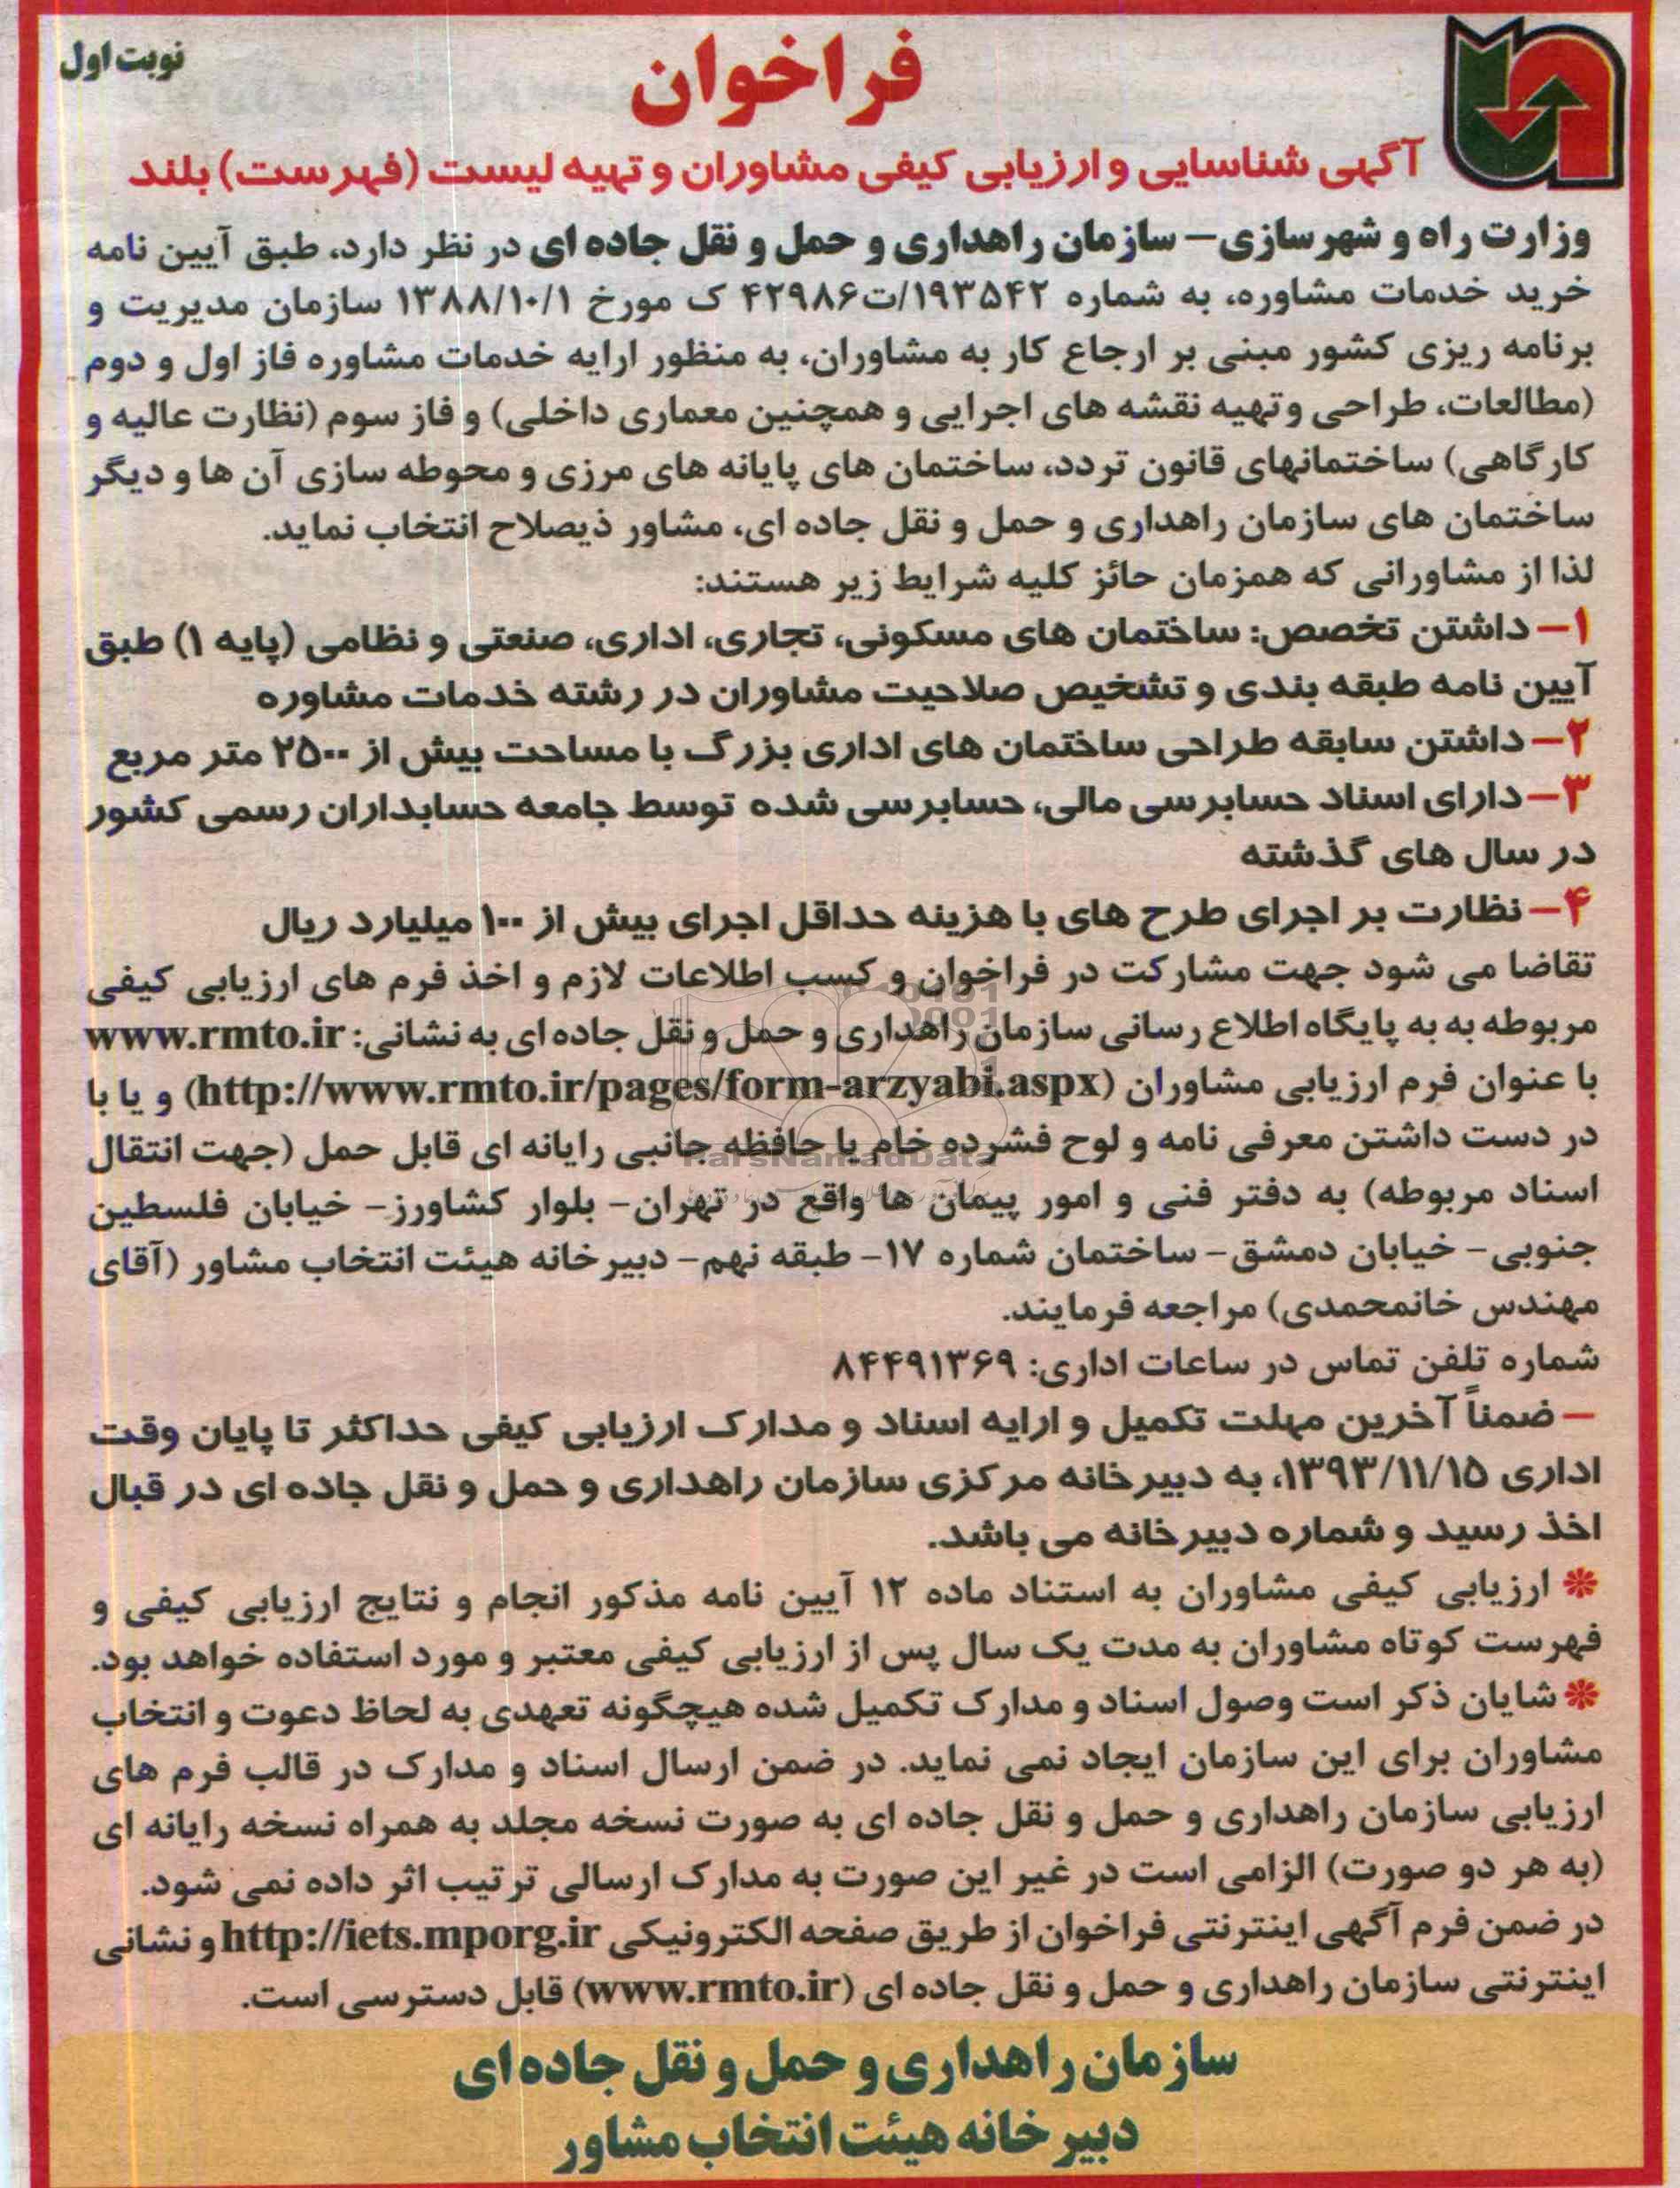 نوبت اول
فراخوان
آگهی شناسایی و ارزیابی کیفی مشاوران و تهیه لیست (فهرست) بلند
وزارت راه و شهرسازی – سازمان راهداری و حمل و نقل جاده ای در نظر دارد، طبق آیین نامه
خرید خدمات مشاوره، به شماره ۱۹۳۵۴۲/ت۴۲۹۸۶ ک مورخ ۱۳۸۸/۱۰/۱ سازمان مدیریت و
برنامه ریزی کشور مبنی بر ارجاع کار به مشاوران، به منظور ارایه خدمات مشاوره فاز اول و دوم
(مطالعات، طراحی و تهیه نقشه های اجرایی و همچنین معماری داخلی) و فاز سوم (نظارت عالیه و
کارگاهی) ساختمانهای قانون تردد، ساختمان های پایانه های مرزی و محوطه سازی آن ها و دیگر
ساختمان های سازمان راهداری و حمل و نقل جاده ای، مشاور ذیصلاح انتخاب نماید.
لذا از مشاورانی که همزمان حائز کلیه شرایط زیر هستند:
۱– داشتن تخصص: ساختمان های مسکونی، تجاری، اداری، صنعتی و نظامی (پایه ۱) طبق
آیین نامه طبقه بندی و تشخیص صلاحیت مشاوران در رشته خدمات مشاوره
۲– داشتن سابقه طراحی ساختمان های اداری بزرگ با مساحت بیش از ۲۵۰۰ متر مربع
۳– دارای اسناد حسابرسی مالی، حسابرسی شده توسط جامعه حسابداران رسمی کشور
در سال های گذشته
۴– نظارت بر اجرای طرح های با هزینه حداقل اجرای بیش از ۱۰۰ میلیارد ریال
تقاضا می شود جهت مشارکت در فراخوان و کسب اطلاعات لازم و اخذ فرم های ارزیابی کیفی
مربوطه به به پایگاه اطلاع رسانی سازمان راهداری و حمل و نقل جاده ای به نشانی: www.rmto.ir
با عنوان فرم ارزیابی مشاوران (http://www.rmto.ir/pages/form-arzyabi.aspx) و یا با
در دست داشتن معرفی نامه و لوح فشرده خام یا حافظه جانبی رایانه ای قابل حمل (جهت انتقال
اسناد مربوطه) به دفتر فنی و امور پیمان ها واقع در تهران– بلوار کشاورز– خیابان فلسطین
جنوبی– خیابان دمشق– ساختمان شماره ۱۷– طبقه نهم– دبیرخانه هیئت انتخاب مشاور (آقای
مهندس خانمحمدی) مراجعه فرمایند.
شماره تلفن تماس در ساعات اداری: ۸۴۴۹۱۳۶۹
– ضمناً آخرین مهلت تکمیل و ارایه اسناد و مدارک ارزیابی کیفی حداکثر تا پایان وقت
اداری ۱۳۹۳/۱۱/۱۵، به دبیرخانه مرکزی سازمان راهداری و حمل و نقل جاده ای در قبال
اخذ رسید و شماره دبیرخانه می باشد.
❋ ارزیابی کیفی مشاوران به استناد ماده ۱۲ آیین نامه مذکور انجام و نتایج ارزیابی کیفی و
فهرست کوتاه مشاوران به مدت یک سال پس از ارزیابی کیفی معتبر و مورد استفاده خواهد بود.
❋ شایان ذکر است وصول اسناد و مدارک تکمیل شده هیچگونه تعهدی به لحاظ دعوت و انتخاب
مشاوران برای این سازمان ایجاد نمی نماید. در ضمن ارسال اسناد و مدارک در قالب فرم های
ارزیابی سازمان راهداری و حمل و نقل جاده ای به صورت نسخه مجلد به همراه نسخه رایانه ای
(به هر دو صورت) الزامی است در غیر این صورت به مدارک ارسالی ترتیب اثر داده نمی شود.
در ضمن فرم آگهی اینترنتی فراخوان از طریق صفحه الکترونیکی http://iets.mporg.ir و نشانی
اینترنتی سازمان راهداری و حمل و نقل جاده ای (www.rmto.ir) قابل دسترسی است.
سازمان راهداری و حمل و نقل جاده ای
دبیرخانه هیئت انتخاب مشاور
ParsNamadData